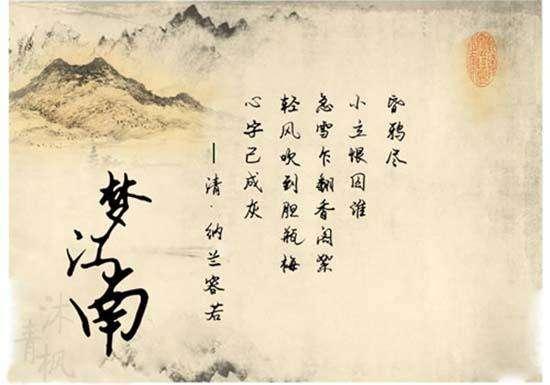 昏鸦尽
小立恨因谁
急雪乍翻香阁絮
轻风吹到胆瓶梅
心字已成灰
—清·纳兰容若
梦江南
沐枫
青